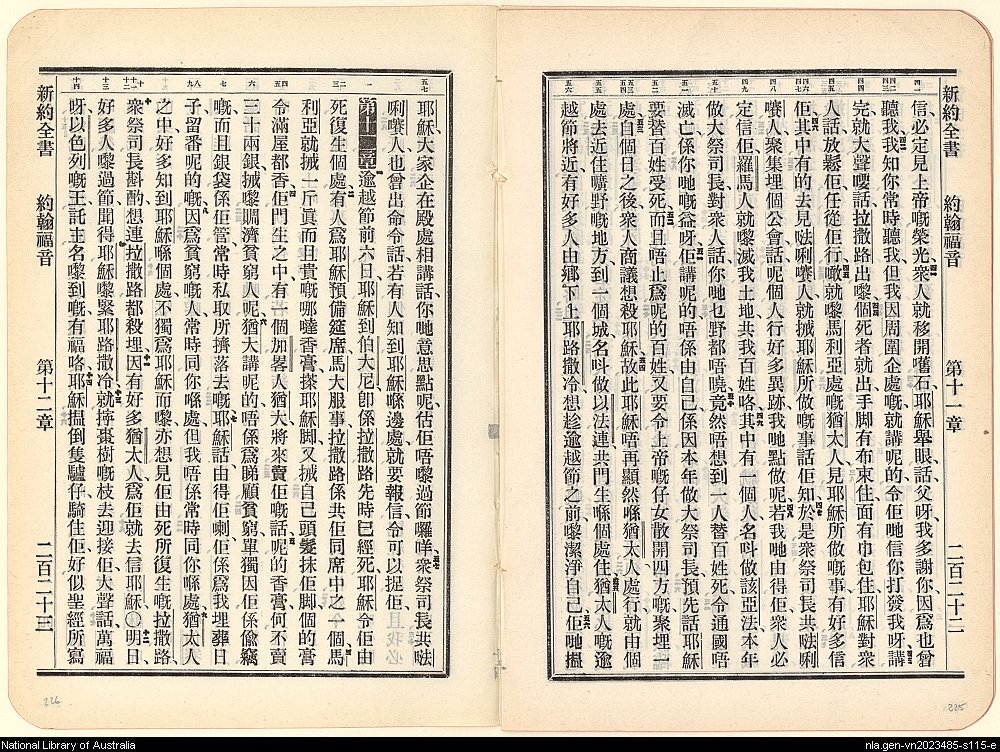 新約全書 約翰福音 第十一章 二百二十二
信必定見上帝嘅榮光衆人就移開舊石耶穌舉眼話父呀我多謝你因爲也曾
聽我我知你常時聽我但我因周圍企處嘅就講呢的令佢哋信你打發我呀講
完就大聲嘜話拉撒路出嚟個死者就出手脚有布束住面有巾包住耶穌對衆
人話放鬆佢任從佢行噉就嚟馬利亞處嘅猶太人見耶穌所做嘅事有好多信
佢其中有的去見𠵽唎嚽人就摵耶穌所做嘅事話佢知於是衆祭司長共𠵽唎
嚽人聚集埋個公會話呢個人行好多異跡我哋點做呢若我哋由得佢衆人必
定信佢羅馬人就嚟滅我土地共我百姓咯其中有一個人名叫做該亞法本年
做大祭司長對衆人話你哋乜野都唔曉竟然唔想到一人替百姓死令通國唔
滅亡係你哋嘅益呀佢講呢的唔係由自己係因本年做大祭司長預先話耶穌
要替百姓受死而且唔止爲呢的百姓又要令上帝嘅仔女散開四方嘅聚埋一
處自個日之後衆人商議想殺耶穌故此耶穌唔再顯然喺猶太人處行就由個
處去近住曠野嘅地方到一個城名叫做以法連共門生喺個處住猶太人嘅逾
越節將近有好多人由鄉下上耶路撒冷想趁逾越節之前嚟潔淨自己佢哋搵
耶穌大家企在殿處相講話你哋意思點呢估佢唔嚟過節囉咩衆祭司長共𠵽
唎嚽人也曾出命令話若有人知到耶穌喺邊處就要報信令可以捉佢
第十二章逾越節前六日耶穌到伯大尼卽係拉撒路先時已經死耶穌令佢由
死復生個處有人爲耶穌預備筵席馬大服事拉撒路係共佢同席中之一個馬
利亞就摵一斤眞而且貴嘅哪噠香膏搽耶穌脚又摵自己頭髮抹佢脚個的膏
令滿屋都香佢門生之中有一個加畧人猶大將來賣佢嘅話呢的香膏何不賣
三十兩銀摵嚟賙濟貧窮人呢猶大講呢的唔係爲睇顧貧窮單獨因佢係偸竊
嘅而且銀袋係佢管常時私取所擠落去嘅耶穌話由得佢喇佢係爲我埋葬日
子留番呢的嘅因爲貧窮嘅人常時同你喺處但我唔係常時同你喺處猶太人
之中好多知到耶穌喺個處不獨爲耶穌而嚟亦想見佢由死所復生嘅拉撒路
衆祭司長斟酌想連拉撒路都殺埋因有好多猶太人爲佢就去信耶穌〇明日
好多人嚟過節聞得耶穌嚟緊耶路撒冷就擰棗樹嘅枝去迎接佢大聲話萬福
呀以色列嘅王託主名嚟到嘅有福咯耶穌搵倒隻驢仔騎住佢好似聖經所寫
新約全書 約翰福音 第十二章 二百二十三
226
225
National Library of Australia
nla.gen-vn2023485-s115-e